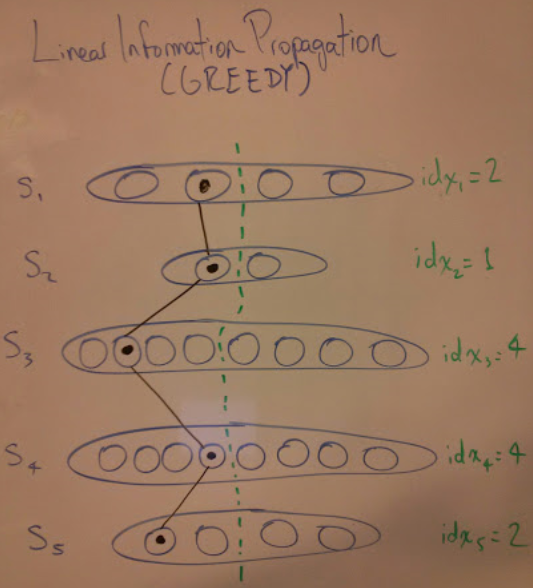 Linear Information Propagation
(GREEDY)
S1 idx1=2
S2 idx2=1
S3 idx3=4
S4 idx4=4
S5 idx5=2